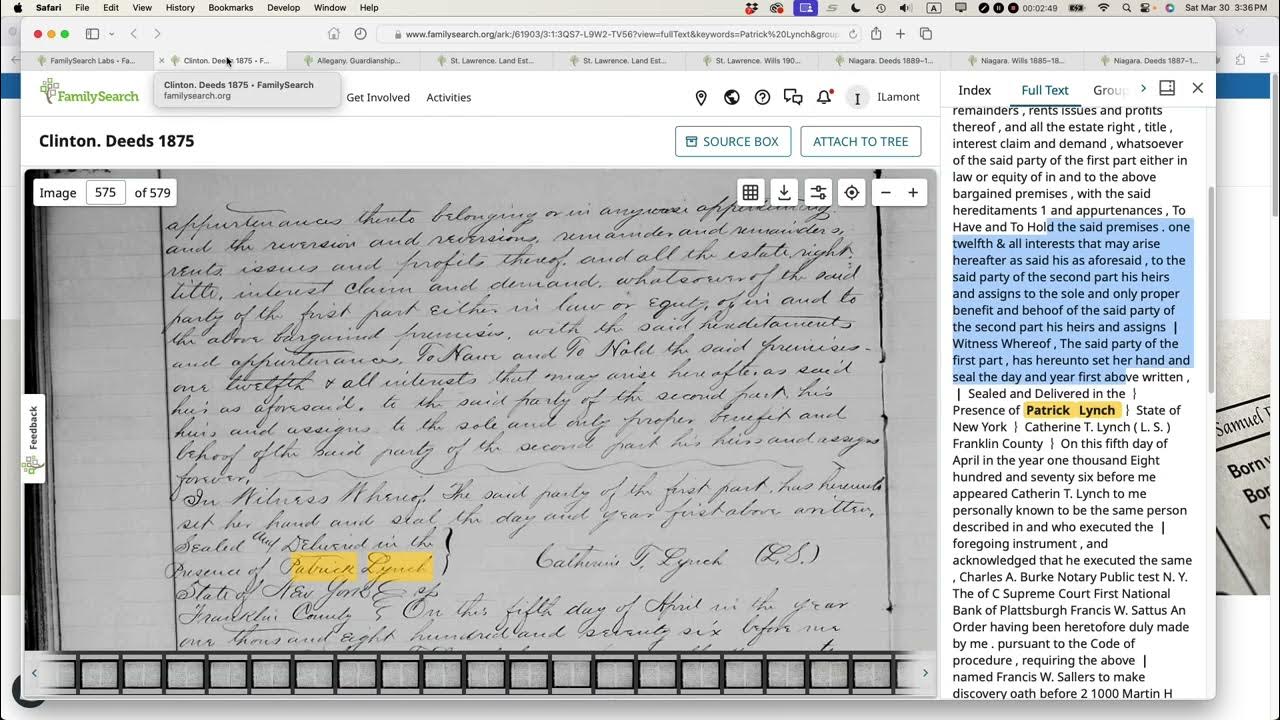 Safari File Edit View History Bookmarks Develop Window Help
00:02:49
Sat Mar 30 3:36 PM
www.familysearch.org/ark:/61903/3:1:3QS7-L9W2-TV56?view=fullText&keywords=Patrick%20Lynch&group
FamilySearch Labs • Fa...
Clinton. Deeds 1875 • F...
Allegany. Guardianship...
St. Lawrence. Land Est...
St. Lawrence. Land Est...
St. Lawrence. Wills 190...
Niagara. Deeds 1889–1...
Niagara. Wills 1885–18...
Niagara. Deeds 1887–1...
Clinton. Deeds 1875 • FamilySearch
familysearch.org
FamilySearch
Get Involved
Activities
I
ILamont
Clinton. Deeds 1875
SOURCE BOX
ATTACH TO TREE
Image 575 of 579
appurtenances thereto belonging or in anywise appertaining
and the reversion and reversions, remainder and remainders,
rents issues and profits thereof, and all the estate, right,
title, interest claim and demand, whatsoever of the said
party of the first part either in law or Equity, of, in and to
the above bargained premises, with the said hereditaments
and appurtenances. To Have and To Hold the said premises-
one twelfth & all interests that may arise hereafter as said
his as aforesaid, to the said party of the second part, his
heirs and assigns, to the sole and only proper benefit and
behoof of the said party of the second part his heirs and assigns
forever.
In Witness Whereof, The said party of the first part, has hereunto
set her hand and seal the day and year first above written.
Sealed and Delivered in the
Presence of Patrick Lynch
Catherine T. Lynch (L.S.)
State of New York
Franklin County On this fifth day of April in the year
one thousand Eight hundred and seventy six before me
Feedback
Index
Full Text
Group
remainders , rents issues and profits
thereof , and all the estate right , title ,
interest claim and demand , whatsoever
of the said party of the first part either in
law or equity of in and to the above
bargained premises , with the said
hereditaments 1 and appurtenances , To
Have and To Hold the said premises . one
twelfth & all interests that may arise
hereafter as said his as aforesaid , to the
said party of the second part his heirs
and assigns to the sole and only proper
benefit and behoof of the said party of
the second part his heirs and assigns |
Witness Whereof , The said party of the
first part , has hereunto set her hand and
seal the day and year first above written ,
| Sealed and Delivered in the }
Presence of Patrick Lynch } State of
New York } Catherine T. Lynch ( L. S. )
Franklin County } On this fifth day of
April in the year one thousand Eight
hundred and seventy six before me
appeared Catherin T. Lynch to me
personally known to be the same person
described in and who executed the |
foregoing instrument , and
acknowledged that he executed the same
, Charles A. Burke Notary Public test N. Y.
The of C Supreme Court First National
Bank of Plattsburgh Francis W. Sattus An
Order having been heretofore duly made
by me . pursuant to the Code of
procedure , requiring the above |
named Francis W. Sallers to make
discovery oath before 2 1000 Martin H
Samuel
Born
Bor
D